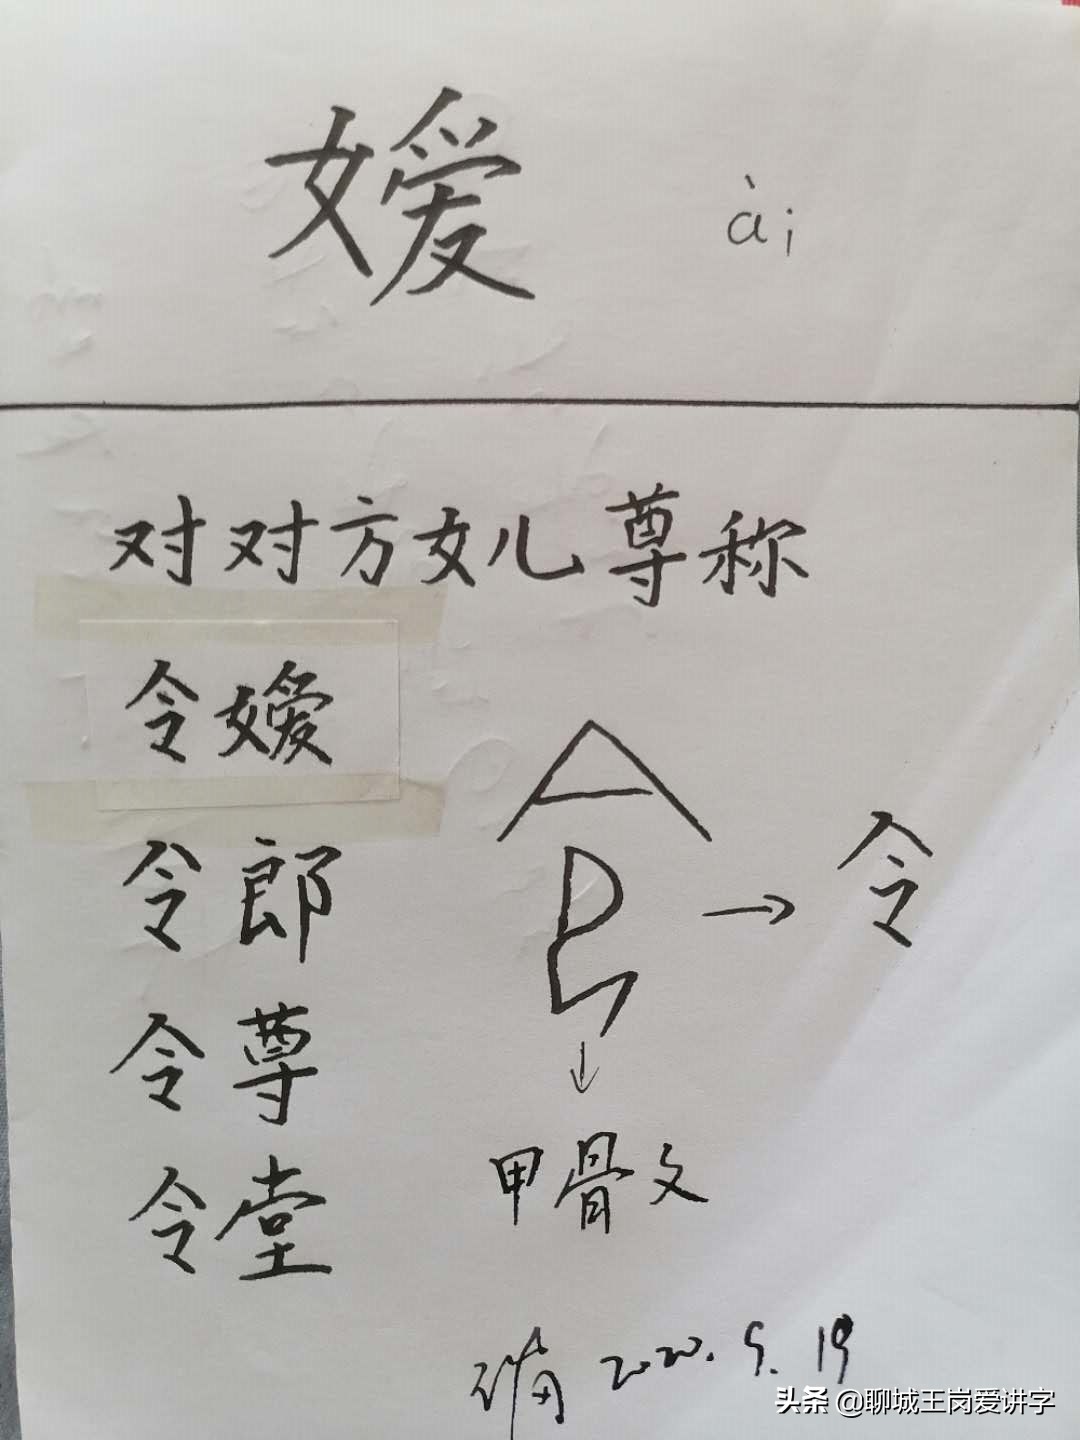 嫒 ài
对对方女儿尊称
令嫒
令郎
→ 令
令尊
↓
甲骨文
令堂
2020.5.19
头条 @聊城王岗爱讲字